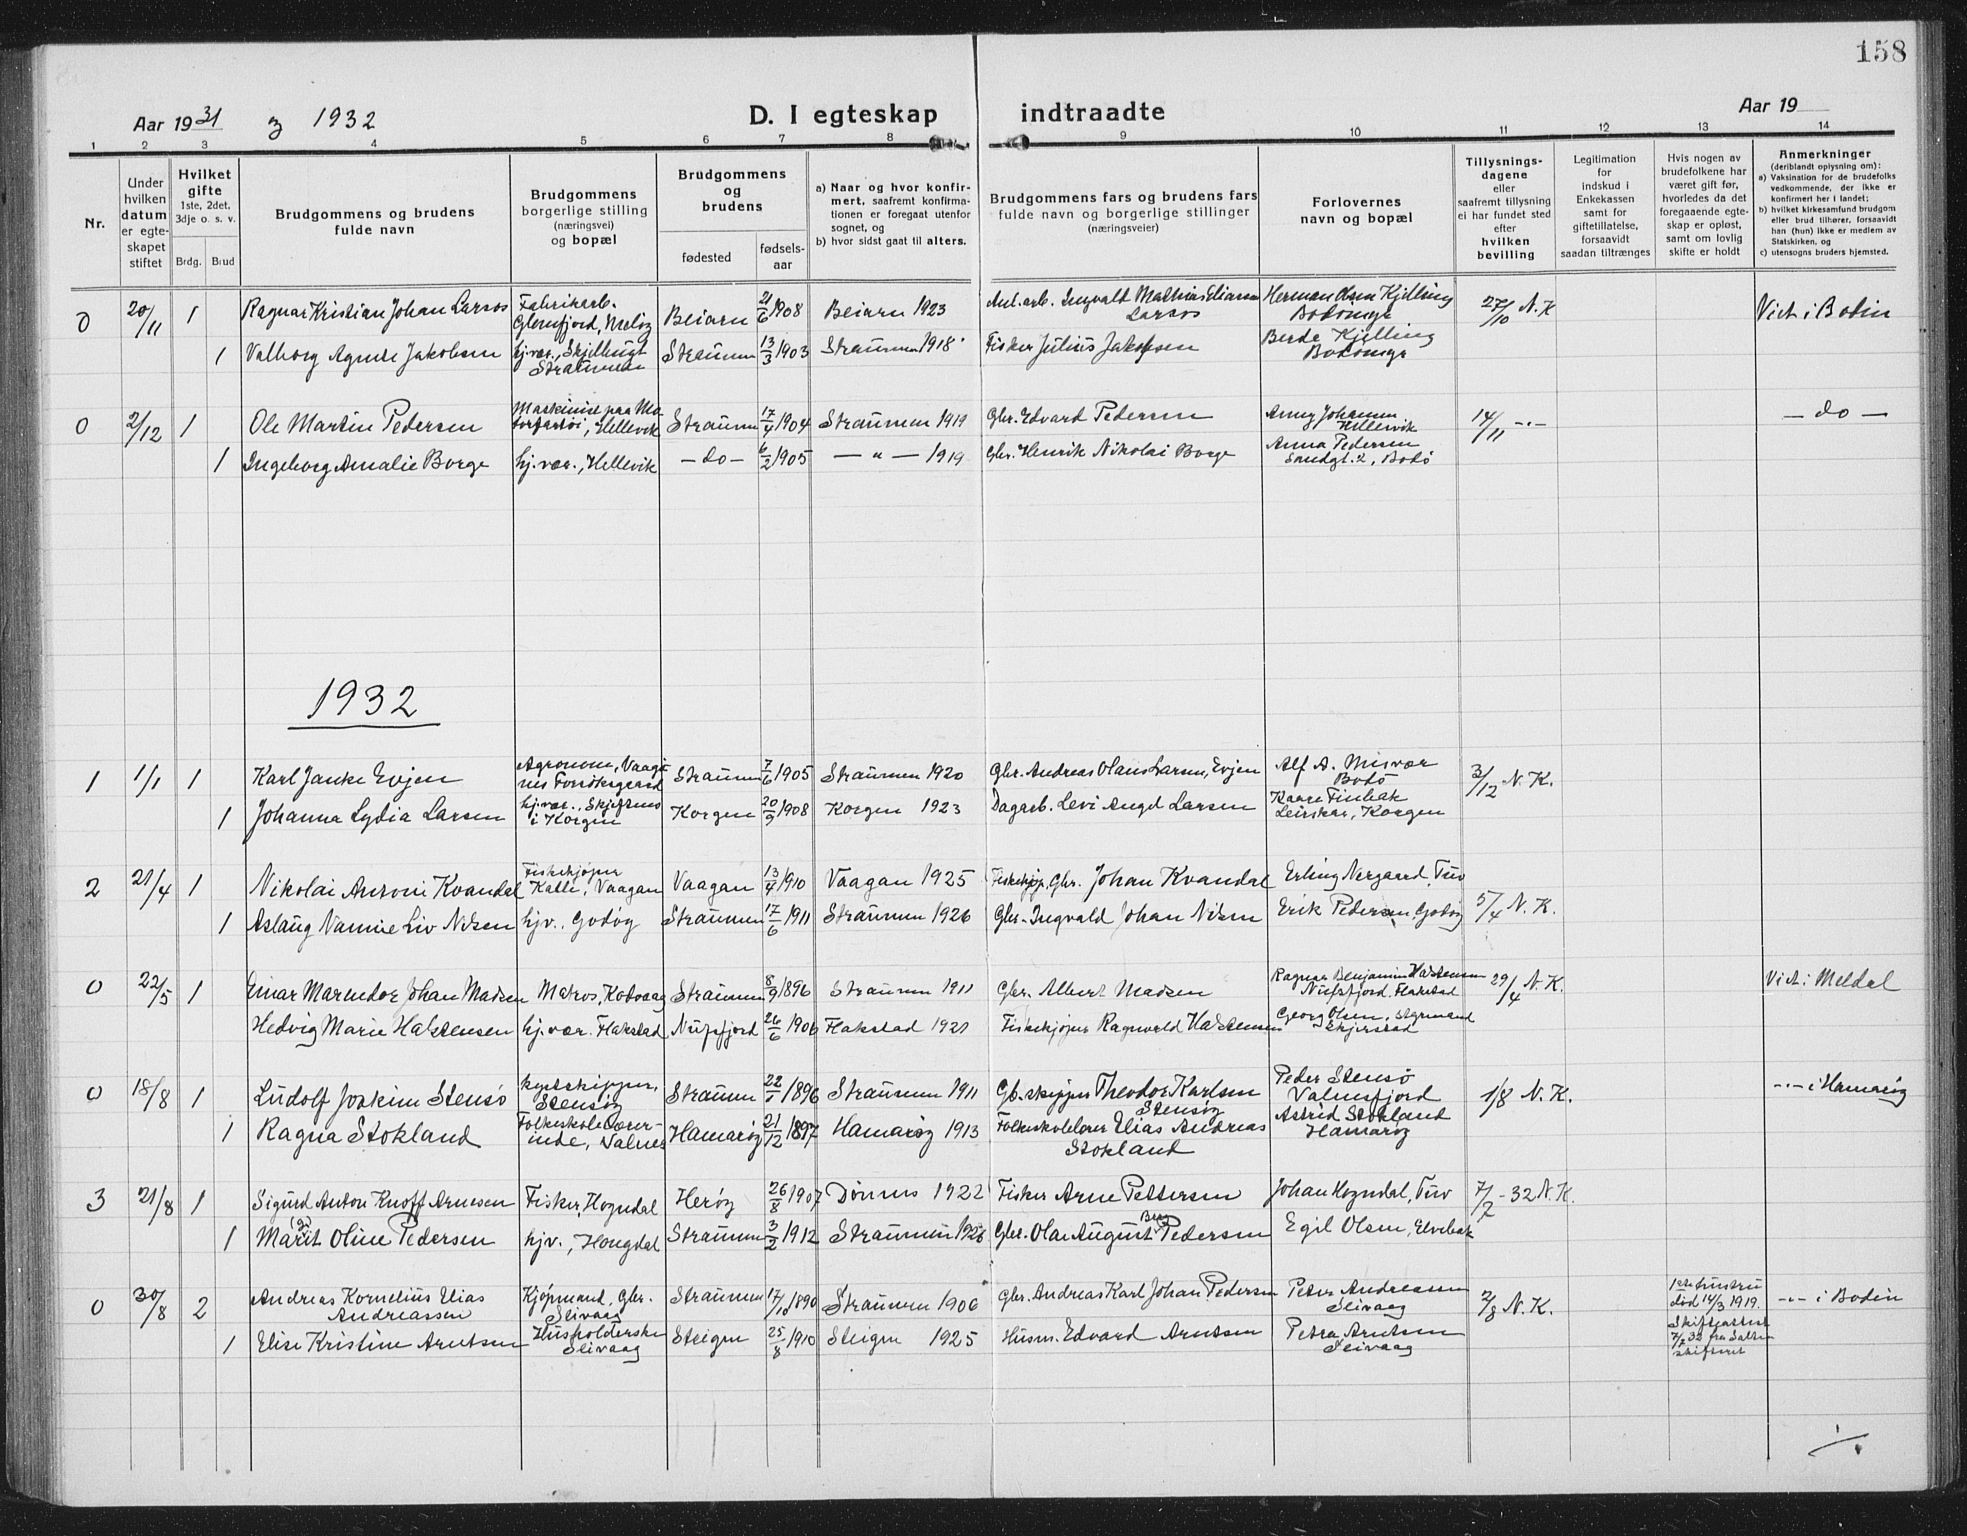 158
Aar 1931 og 1932
D. I egteskap indtraadte
Aar 19
1 2 3 4 5 6 7 8 9 10 11 12 13 14
Nr.
Under hvilken datum er egte-skapet stiftet
Hvilket gifte 1ste, 2det, 3dje o. s. v.
Brdg. Brud
Brudgommens og brudens fulde navn
Brudgommens borgerlige stilling (næringsvei) og bopæl
Brudgommens og brudens
fødested
fødsels-aar
a) Naar og hvor konfir-mert, saafremt konfirma-tionen er foregaat utenfor sognet, og
b) hvor sidst gaat til alters.
Brudgommens fars og brudens fars fulde navn og borgerlige stillinger (næringsveier)
Forlovernes navn og bopæl
Tillysnings-dagene eller saafremt tillysning ei har fundet sted efter hvilken bevilling
Legitimation for indskud i Enkekassen samt for giftetillatelse, forsaavidt saadan tiltrænges
Hvis nogen av brudefolkene har været gift før, hvorledes da det foregaaende egte-skap er opløst, samt om lovlig skifte er holdt
Anmerkninger (deriblandt oplysning om):
a) Vaksination for de brudefolks vedkommende, der ikke er konfirmert her i landet;
b) hvilket kirkesamfund brudgom eller brud tilhører, forsaavidt han (hun) ikke er medlem av Statskirken, og
c) utensogns bruders hjemsted.
0 20/11 1 Ragnar Kristian Johan Larsos Fabrikarb. Glomfjord, Meløy Beiarn 21/6 1908 Beiarn 1923 Anl.arb. Ingvald Mathias Eliassen Larsos Herman Olsen Kjelling Bodømge 27/10 N. K Viet i Bodin
1 Valborg Agnete Jakobsen hj.vær., Skjelbugt Straumen Straumen 13/3 1903 Straumen 1918 Fisker Julius Jakobsen Berda Kjelling Bodømge
0 2/12 1 Ole Martin Pedersen Maskinist paa Motorfartøi, Hellevik Straumen 17/4 1904 Straumen 1919 Gbr. Edvard Pedersen Anny Johansen Hellevik 14/11 -"- — do —
1 Ingeborg Amalie Borge hj. vær., Hellevik — do — 6/2 1905 — " — 1919 Gbr. Henrik Nikolai Borge Anna Pedersen Sandgt. 2, Bodø
1932
1 1/1 1 Karl Janke Evjen Agronom, Vaagønes Forsøksgaard Straumen 7/6 1905 Straumen 1920 Gbr. Andreas Olaus Larsen, Evjen Alf A. Misvær Bodø 3/12 N. K.
1 Johanna Lydia Larsen hj.vær., Skjeftmo i Korgen Korgen 20/9 1908 Korgen 1923 Dagarb. Levi Angel Larsen Kaare Finbak Leirskar, Korgen
2 21/4 1 Nikolai Antoni Kvandal Fiskekjøper Kalle, Vaagan Vaagan 13/4 1910 Vaagan 1925 Fiskekjøp., Gbr. Johan Kvandal Erling Nergaard, Tuv
1 Aslaug Nannie Liv Nilsen hjv. Godøy Straumen 17/6 1911 Straumen 1926 Gbr. Ingvald Johan Nilsen Erik Pedersen, Godøy 5/4 N. K.
0 22/5 1 Einar Marendor Johan Madsen Matros, Kodvaag Straumen 8/9 1896 Straumen 1911 Gbr. Albert Madsen Ragnar Benjamin Halstensen Nufsfjord, Flakstad 29/4 N. K. Viet i Meldal
Hedvig Marie Halstensen hj. vær. Flakstad Nufsfjord 26/6 1906 Flakstad 1921 Fiskekjøper Ragnvald Halstensen Georg Olsen, styrmand Skjerstad
0 18/8 1 Ludolf Joakim Stensø kystskipper, Stensøy Straumen 22/1896 Straumen 1911 Gb. skipper Theodor Karlsen Stensøy Peder Stensø Valnesfjord 1/8 N. K. -"- i Hamarøy
1 Ragna Stokland Folkeskolelærerinde, Valnes Hamarøy 21/12 1897 Hamarøy 1913 Folkeskolelærer Elias Andreas Stokland Astrid Stokland Hamarøy
3 21/8 1 Sigurd Anton Knoff Arnesen Fisker, Hogndal Herøy 26/8 1907 Dønnes 1922 Fisker Arne Pettersen Johan Hogndal, Tuv 7/2 - 32 N. K.
1 Marit Oline Pedersen hjv., Hongdal Straumen 3/2 1912 Straumen 1926 Gbr. Olai August Berg Pedersen Egil Olsen, Elvebak
0 30/8 2 Andreas Kornelius Elias Andreassen Kjøpmand, Gbr. Seivaag Straumen 17/10 1890 Straumen 1906 Gbr. Andreas Karl Johan Pedersen Peter Andreassen Seivaag 2/8 N. K. 1ste hustru død 14/3 1919. Skifteattest 7/7 32 fra Salten skifteret -"- i Bodin
1 Elise Kristine Arntsen Husholderske Seivaag Steigen 25/8 1910 Steigen 1925 Husm. Edvard Arntsen Petra Arntsen Seivaag